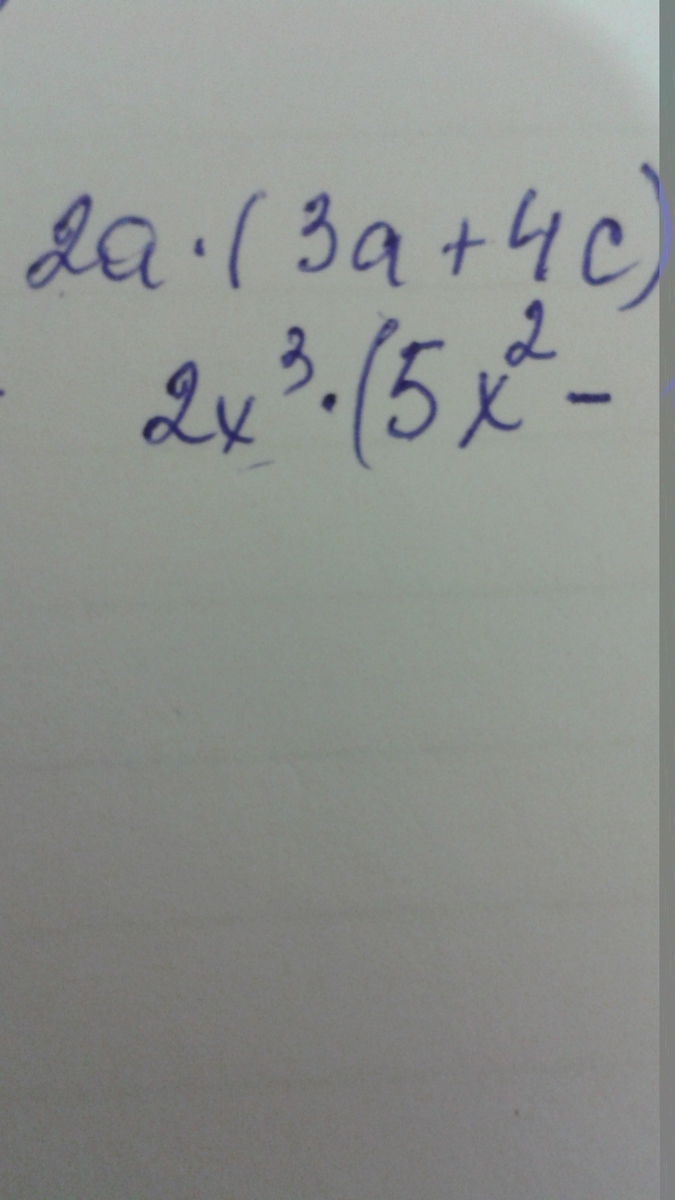 2a·(3a+4c)
2x³·(5x²-